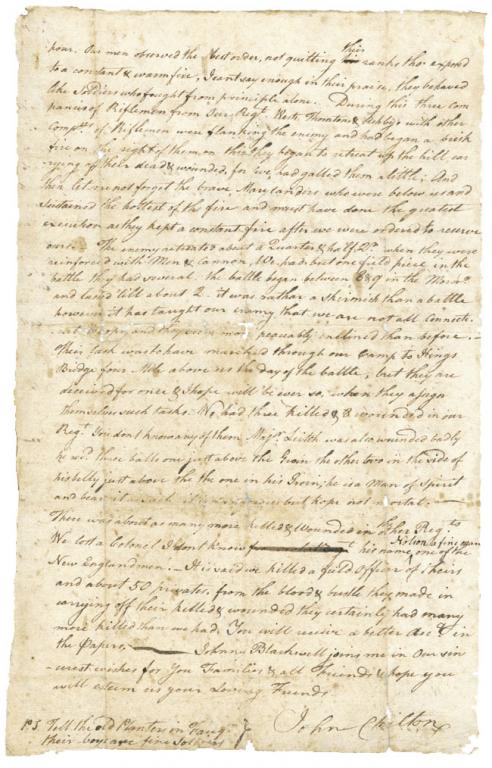 pour. Our men observed the best order, not quitting their ranks tho exposed
to a constant & warm fire, I cant say enough in their praise, they behaved
like Soldiers who fought from principle alone. During this three com
panies of Riflemen from Our Regt. West, Thornton & Ashby's with other
Compys. of Riflemen were flanking the enemy and had began a brisk
fire on the right of them on this they began to retreat up the hill car
rying off their dead & wounded, for we had galled them a little; And
here let me not forget the brave Marylanders who were below us and
sustained the hottest of the fire and must have done the greatest
execution as they kept a constant fire after we were ordered to reserve
ours. The enemy retreated about a Quarter & half Do. when they were
reinforced with Men & Cannon, We had but one field piece in the
battle they had several. the battle began between 8 & 9 in the Morng.
and lasted till about 2. it was rathar a skirmish than a battle
however it has taught our enemy that we are not all Connecti-
cut Troops, and they seem more peacably inclined than before. -
Their Task was to have marched through our Camp to Kings
Bridge four Mile above us the day of the battle, but they are
deceived for once & I hope will be ever so, when they assign
themselves such tasks. We had three killed & 8 wounded in our
Regt. You dont know any of them, Majr. Leitch was also wounded badly
he recd. three balls one just above the Groin the other two in the side of
his belly just above the the one in his Groin, he is a Man of Spirit
and bears it but hope not mortal. —
There was about as many more killed & Wounded in other Regts.
We lost a Colonel I dont know his name, one of the
New England men. - It is said we killed a field Officer of theirs
and about 50 privates, from the blood & bustle they made in
carrying off their killed & wounded they certainly had many
more killed than we had. You will receive a better Acct. in
the Papers. — Johnny Blackwell joins me in Our sin
-cerest wishes for You Families & all Friends & hope you
will esteem us your Loving Friends
John Chilton
PS Tell the old Planters in Fauqr.
their boys are fine Soldiers